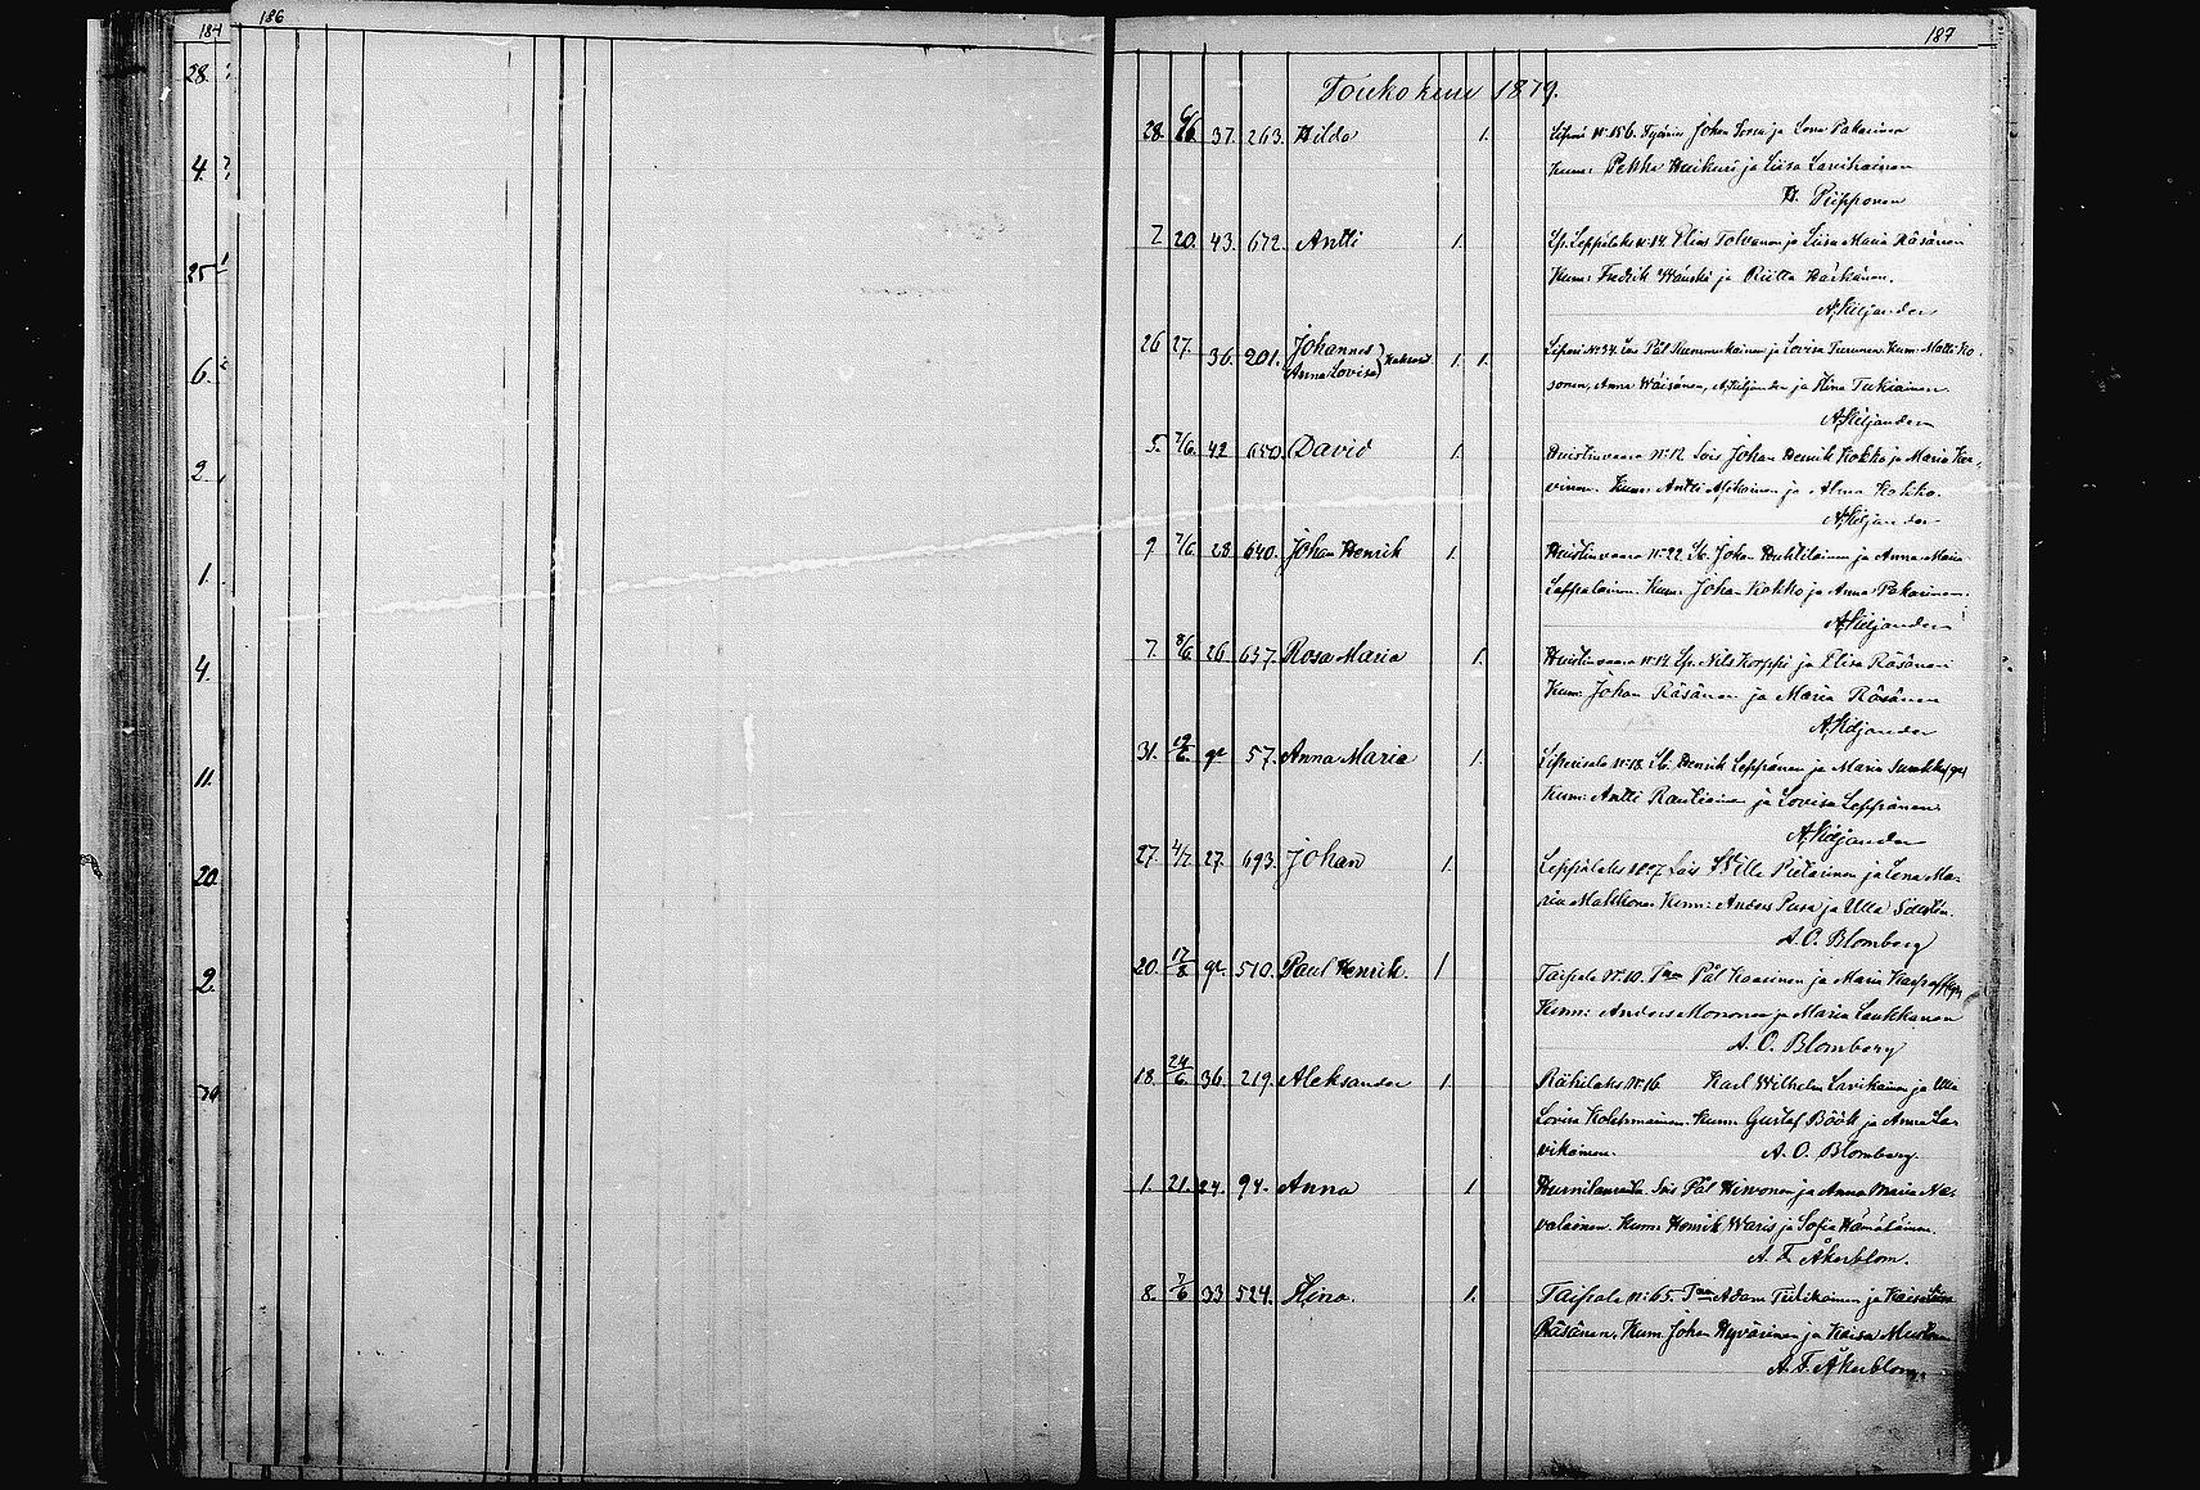 184
186
187
28.
4.
25
6.
2
1.
4.
11.
20.
2.
Toukokuu 1879.
28. 6/6. 37. 263. Hilda 1. Liperi N:o 156. Johan ja Lena Pakarinen
Kum: Pekka Huikuri ja Liisa Lavikainen
H. Piipponen
7 20. 43. 672. Antti 1. Lp. Leppälaks N:o 14. Elias Tolvanen ja Liisa Maria Räsänen
Kum: Fredrik Wänskä ja Riitta Härkänen.
A. Kiljander
26 27. 36. 201. Johannes Anna Lovisa 1. 1. Liperi N:o 34. Pål ja Lovisa Turunen. Kum: Matti Ko-
sonen, Anna Wäisänen, A. Kiljander ja Hina Tukiainen.
A. Kiljander
5. 2/6. 42 650. David 1. Huistinvaara N:o 12 Lois Johan Henrik Kokko ja Maria Kar-
vinen. Kum: Antti ja Alma Kokko.
A. Kiljander
9 2/6. 28 640. Johan Henrik 1. Huistinvaara N:o 22 Johan Huhtilainen ja Anna Maria
Leppälainen. Kum: Johan Kokko ja Anna Pakarinen.
A. Kiljander
7. 8/6 26 657. Rosa Maria 1. Huistinvaara N:o 14 Lp. Nils Korppi ja Elisa Räsänen
Kum: Johan Räsänen ja Maria Räsänen
A. Kiljander
31. 19/6. gr 57. Anna Maria 1. Liperinsalo N:o 18. Henrik Leppänen ja Maria Surakka (gr)
Kum: Antti Rautiainen ja Lovisa Leppänen.
A. Kiljander
27. 4/7. 27. 693. Johan 1. Leppälaks N:o 7 Lois Wille Pietarinen ja Lena Ma-
ria Makkonen Kum: Anders Pusa ja Ulla
A. O. Blomberg
20. 17/8 gr. 510. Paul Henrik. 1 Taipale N:o 10. Pål Kaasinen ja Maria
Kum: Anders Mononen ja Maria Laukkanen
A. O. Blomberg
18. 24/6. 36. 219. Aleksander 1. Rähilaks N:o 16 Karl Wilhelm Lavikainen ja Ulla
Lovisa Kolehmainen. Kum: Gustaf Böök ja Anna La-
vikainen. A. O. Blomberg.
1. 21. 24. 94. Anna 1 Lois Pål Hirvonen ja Anna Maria Ne-
valainen. Kum: Henrik Waris ja Sofia Hämäläinen.
A. F. Åkerblom.
8. 7/6 33 524. Hina. 1. Taipale N:o 65. Adam Tiilikainen ja Kaisa Liisa
Räsänen. Kum: Johan Hyvärinen ja Kaisa Mustonen
A. F. Åkerblom.